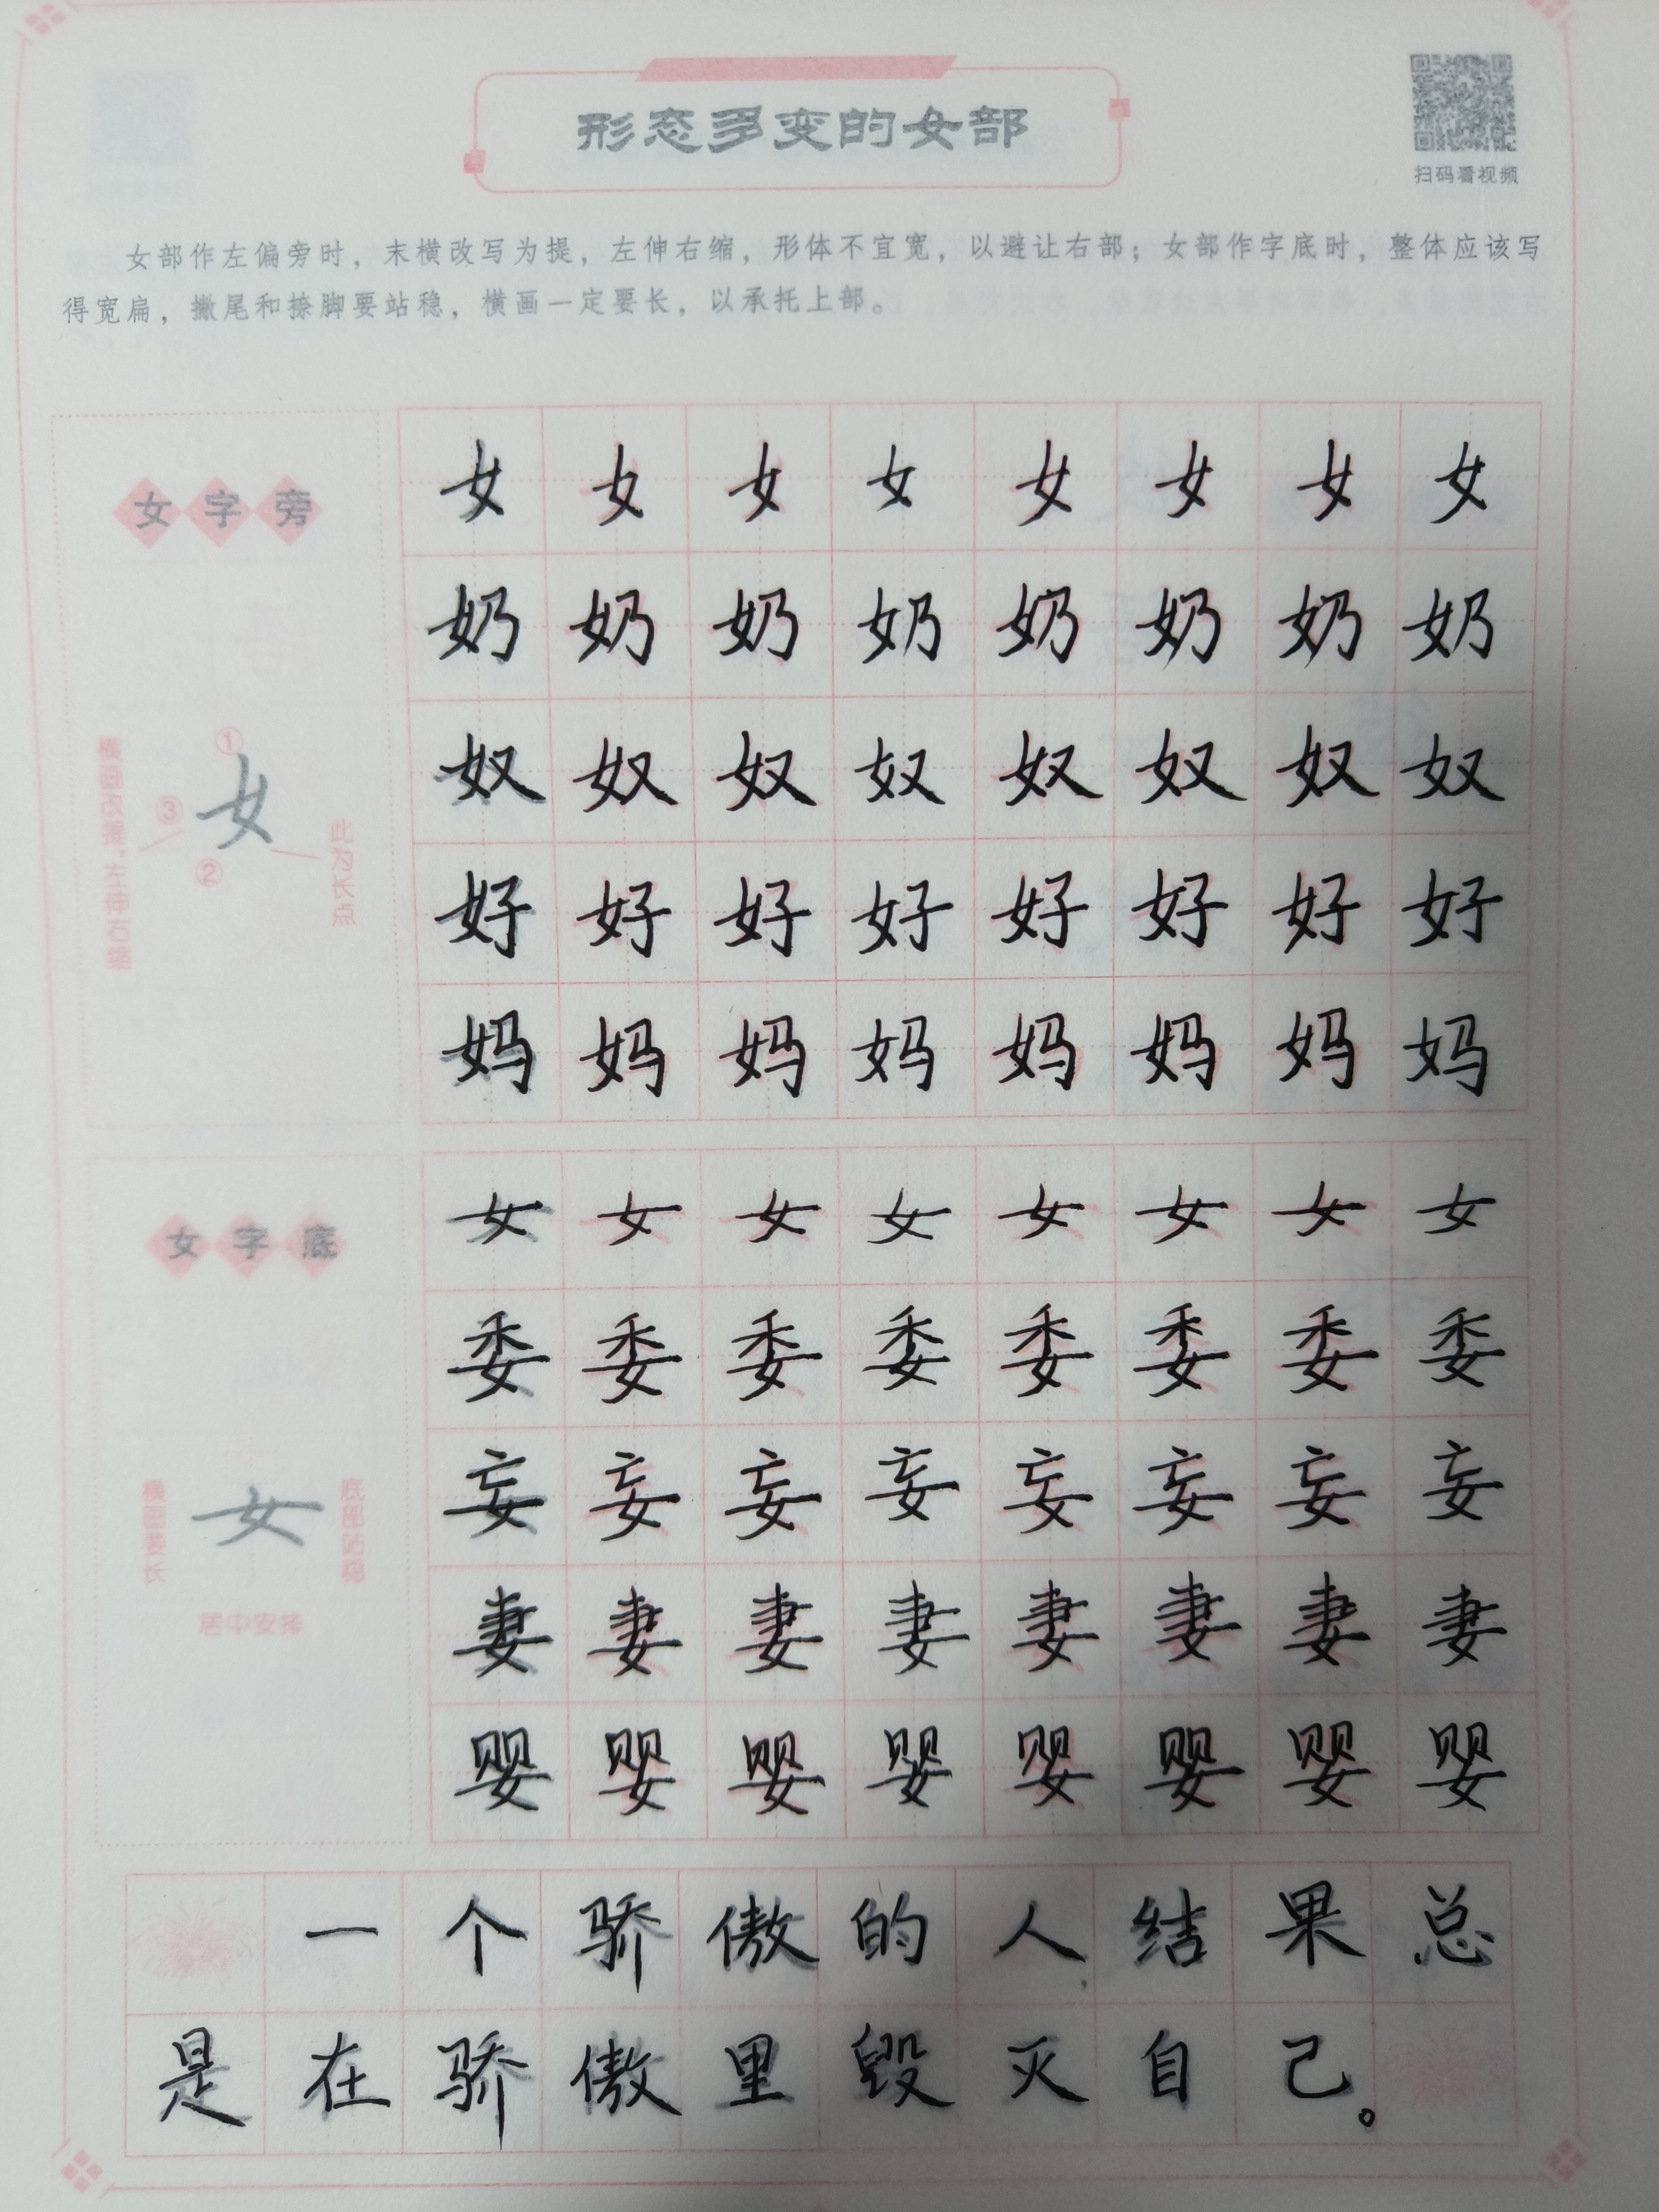 形态多变的女部
扫码看视频
女部作左偏旁时，末横改写为提，左伸右缩，形体不宜宽，以避让右部；女部作字底时，整体应该写
得宽扁，撇尾和捺脚要站稳，横画一定要长，以承托上部。
女字旁
女 女 女 女 女 女 女 女
奶 奶 奶 奶 奶 奶 奶 奶
奴 奴 奴 奴 奴 奴 奴 奴
好 好 好 好 好 好 好 好
妈 妈 妈 妈 妈 妈 妈 妈
横画改提，左伸右缩
①
②
③
女
此为长点
女字底
女 女 女 女 女 女 女 女
委 委 委 委 委 委 委 委
妄 妄 妄 妄 妄 妄 妄 妄
妻 妻 妻 妻 妻 妻 妻 妻
婴 婴 婴 婴 婴 婴 婴 婴
横画要长
女
底部站稳
居中安排
一个骄傲的人结果总
是在骄傲里毁灭自己。